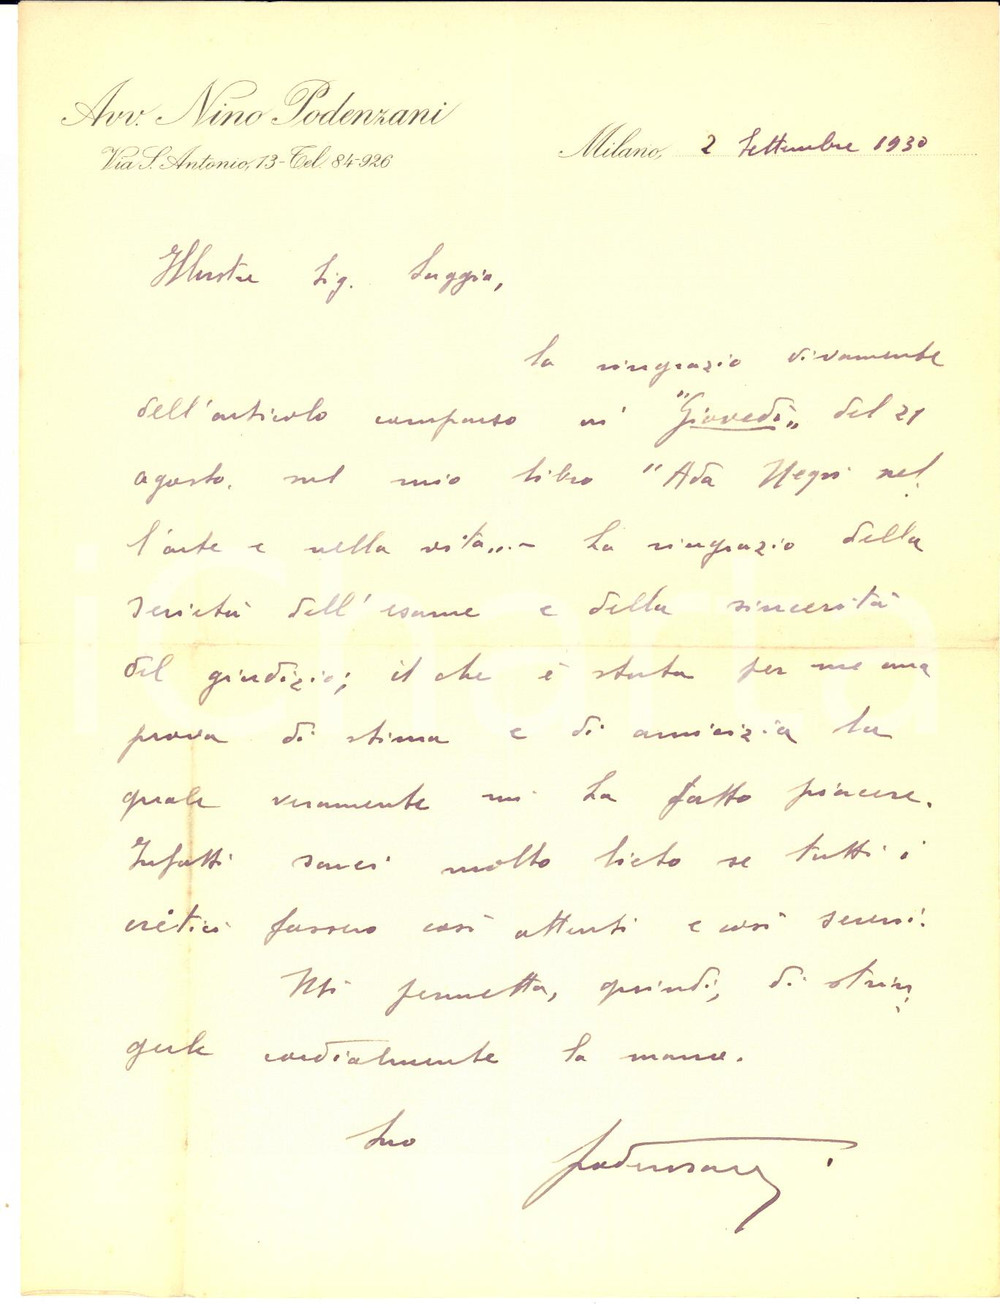 Avv. Nino Podenzani
Via S. Antonio, 13 - Tel. 84-926
Milano, 2 Settembre 1930
Illustre Sig. Saggio,
La ringrazio vivamente
dell'articolo comparso in "Giovedì" del 21
agosto. sul mio libro "Ada Negri nel
l'arte e nella vita". - La ringrazio della
serietà dell'esame e della sincerità
del giudizio; il che è stata per me una
prova di stima e di amicizia la
quale veramente mi ha fatto piacere.
Infatti sarei molto lieto se tutti i
critici fossero così attenti e così sereni.
Mi permetta, quindi, di strin
gerle cordialmente la mano.
Suo
Podenzani
iCharta